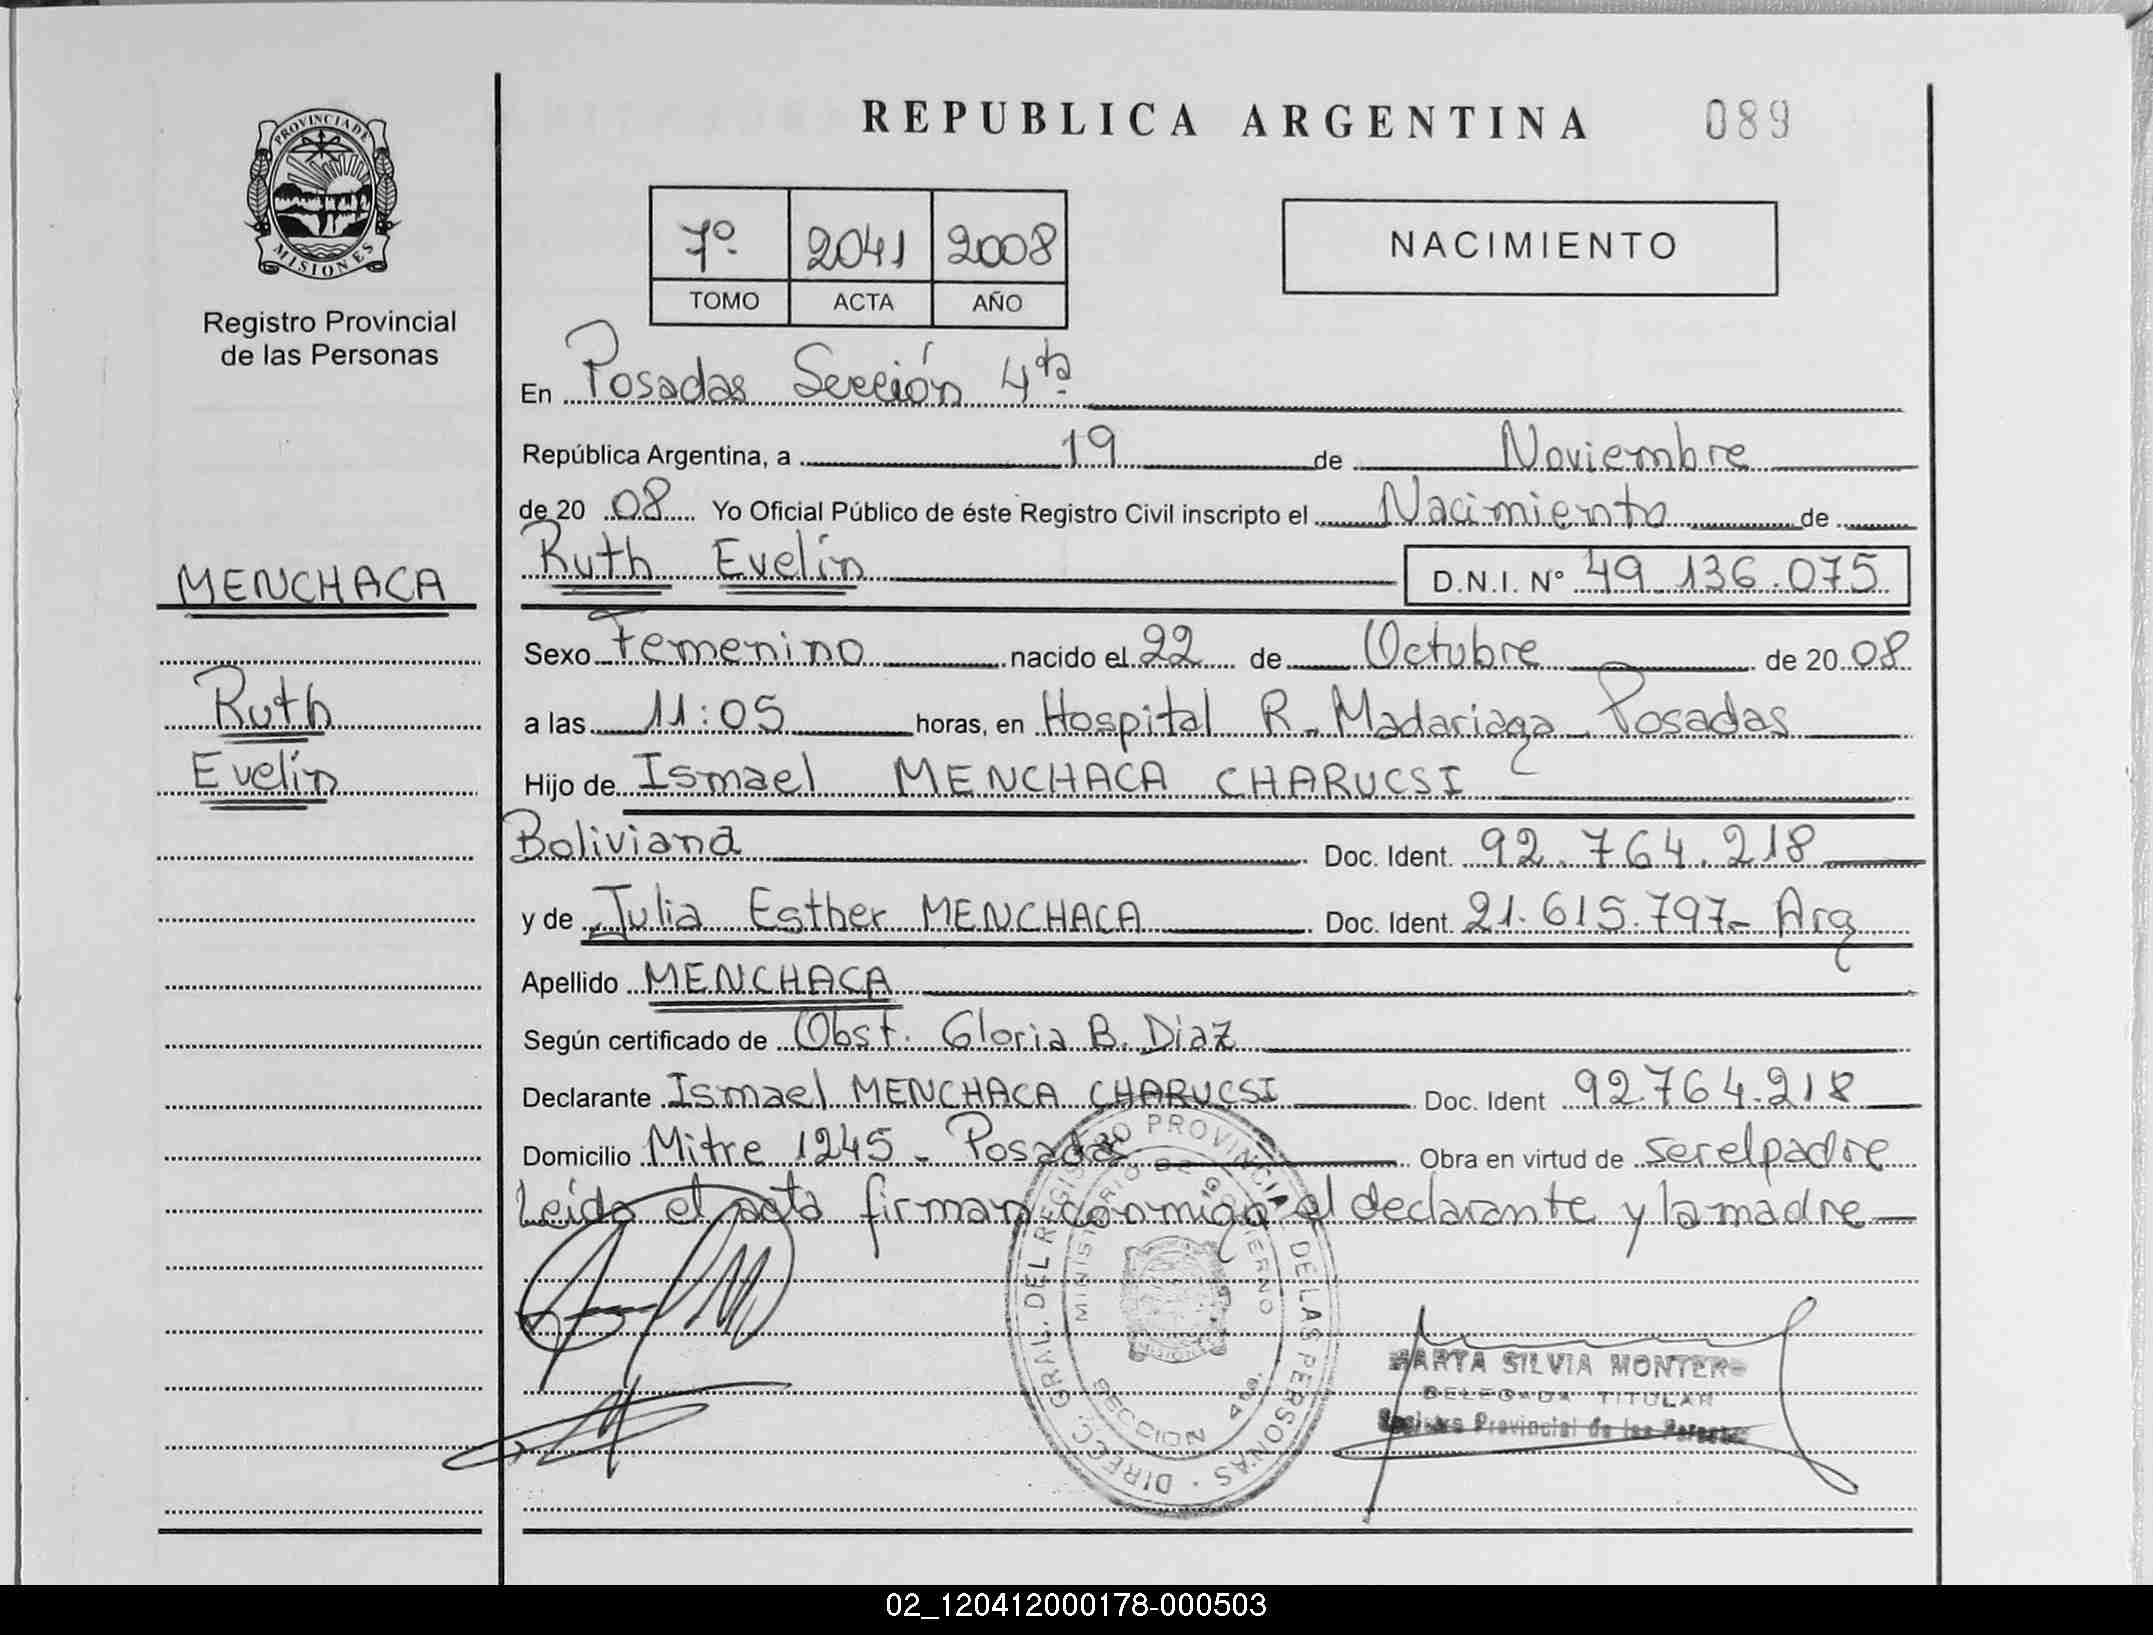 PROVINCIA DE
MISIONES
Registro Provincial
de las Personas
MENCHACA
Ruth
Evelin
REPUBLICA ARGENTINA 089
7º 2041 2008
TOMO ACTA AÑO
NACIMIENTO
En Posadas Sección 4ta
República Argentina, a 19 de Noviembre
de 20 08 Yo Oficial Público de éste Registro Civil inscripto el Nacimiento de
Ruth Evelín D.N.I. Nº 49.136.075
Sexo Femenino nacido el 22 de Octubre de 20 08
a las 11:05 horas, en Hospital R. Madariaga - Posadas
Hijo de Ismael MENCHACA CHARUCSI
Boliviana Doc. Ident. 92.764.218
y de Julia Esther MENCHACA Doc. Ident. 21.615.797- Arg
Apellido MENCHACA
Según certificado de Obst. Gloria B. Diaz
Declarante Ismael MENCHACA CHARUCSI Doc. Ident 92.764.218
Domicilio Mitre 1245 - Posadas Obra en virtud de ser el padre
Leida el acta firman conmigo el declarante y la madre
DIRECC. GRAL. DEL REGISTRO PROVINCIAL DE LAS PERSONAS
MINISTERIO DE GOBIERNO
SECCION 4ta.
MARTA SILVIA MONTERO
DELEGADA TITULAR
Registro Provincial de las Personas
02_120412000178-000503